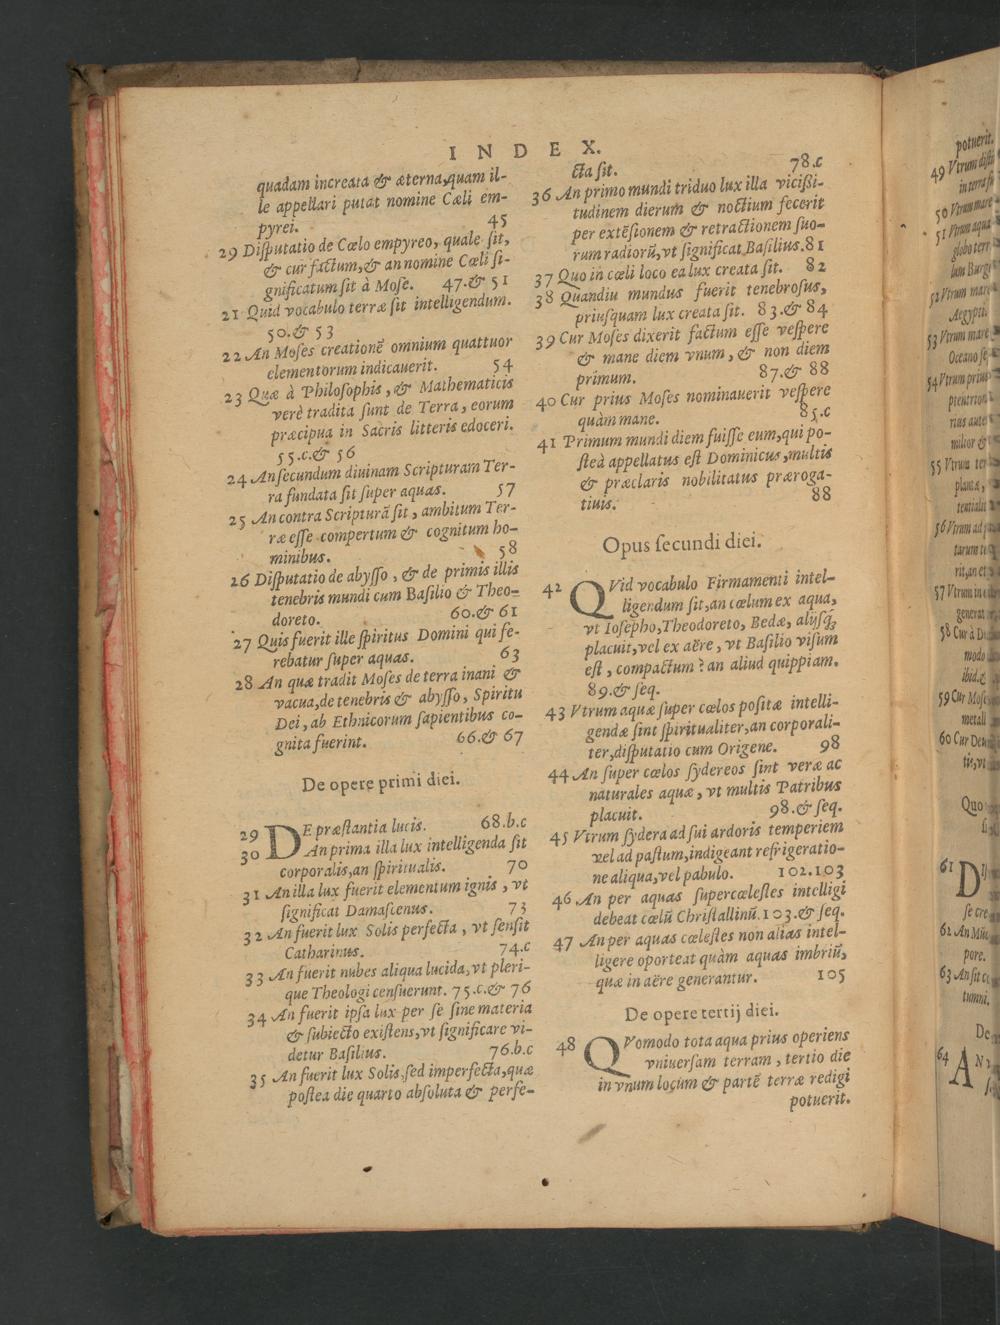 INDEX.
quadam increata & æterna,quam il-
le appellari putat nomine Cæli em-
pyrei. 45
29 Diſputatio de Cœlo empyreo, quale ſit,
& cur factum,& an nomine Cæli ſi-
gnificatum ſit à Moſe. 47.& 51
21 Quid vocabulo terræ ſit intelligendum.
50.& 53
22 An Moſes creationē omnium quattuor
elementorum indicauerit. 54
23 Quæ à Philoſophis, & Mathematicis
verè tradita ſunt de Terra, eorum
præcipua in Sacris litteris edoceri.
55.c.& 56
24 An ſecundum diuinam Scripturam Ter-
ra fundata ſit ſuper aquas. 57
25 An contra Scripturā ſit, ambitum Ter-
ræ eſſe compertum & cognitum ho-
minibus. 58
26 Diſputatio de abyſſo, & de primis illis
tenebris mundi cum Baſilio & Theo-
doreto. 60.& 61
27 Quis fuerit ille ſpiritus Domini qui fe-
rebatur ſuper aquas. 63
28 An quæ tradit Moſes de terra inani &
vacua,de tenebris & abyſſo, Spiritu
Dei, ab Ethnicorum ſapientibus co-
gnita fuerint. 66.& 67
De opere primi diei.
29 DE præſtantia lucis. 68.b.c
30 An prima illa lux intelligenda ſit
corporalis,an ſpiritualis. 70
31 An illa lux fuerit elementum ignis, vt
ſignificat Damaſcenus. 73
32 An fuerit lux Solis perfecta, vt ſenſit
Catharinus. 74.c
33 An fuerit nubes aliqua lucida, vt pleri-
que Theologi cenſuerunt. 75.c.& 76
34 An fuerit ipſa lux per ſe ſine materia
& ſubiecto exiſtens,vt ſignificare vi-
detur Baſilius. 76.b.c
35 An fuerit lux Solis,ſed imperfecta,quæ
poſtea die quarto abſoluta & perfe-
cta ſit. 78.c
36 An primo mundi triduo lux illa viciſſi-
tudinem dierum & noctium fecerit
per extēſionem & retractionem ſuo-
rum radiorū,vt ſignificat Baſilius. 81
37 Quo in cœli loco ea lux creata ſit. 82
38 Quandiu mundus fuerit tenebroſus,
priuſquam lux creata ſit. 83.& 84
39 Cur Moſes dixerit factum eſſe veſpere
& mane diem vnum, & non diem
primum. 87.& 88
40 Cur prius Moſes nominauerit veſpere
quàm mane. 85.c
41 Primum mundi diem fuiſſe eum,qui po-
ſteà appellatus eſt Dominicus,multis
& præclaris nobilitatus præroga-
tiuis. 88
Opus ſecundi diei.
42 QVid vocabulo Firmamenti intel-
ligendum ſit,an cœlum ex aqua,
vt Ioſepho,Theodoreto, Bedæ, alijſq́;
placuit,vel ex aëre, vt Baſilio viſum
eſt, compactum? an aliud quippiam.
89.& ſeq.
43 Vtrum aquæ ſuper cœlos poſitæ intelli-
gendæ ſint ſpiritualiter,an corporali-
ter,diſputatio cum Origene. 98
44 An ſuper cœlos ſydereos ſint veræ ac
naturales aquæ, vt multis Patribus
placuit. 98.& ſeq.
45 Vtrum ſydera ad ſui ardoris temperiem
vel ad paſtum,indigeant refrigeratio-
ne aliqua,vel pabulo. 102.103
46 An per aquas ſupercœleſtes intelligi
debeat cœlū Chriſtallinū. 103.& ſeq.
47 An per aquas cœleſtes non alias intel-
ligere oporteat quàm aquas imbriū,
quæ in aëre generantur. 105
De opere tertij diei.
48 QVomodo tota aqua prius operiens
vniuerſam terram, tertio die
in vnum locum & partē terræ redigi
potuerit.
potuerit.
49 Vtrum
50 Vtrum mare
51 Vtrum aqua
52 Vtrum mare
Aegypti.
53 Vtrum mare
Oceano
54 Vtrum prius
55 Vtrum
plantæ,
56 Vtrum ad
57 Vtrum in
58 Cur à
modo
59 Cur Moſes
metall
60 Cur Deus
Quo
61 D
62 An
pore.
63 An ſit
De
64 AN